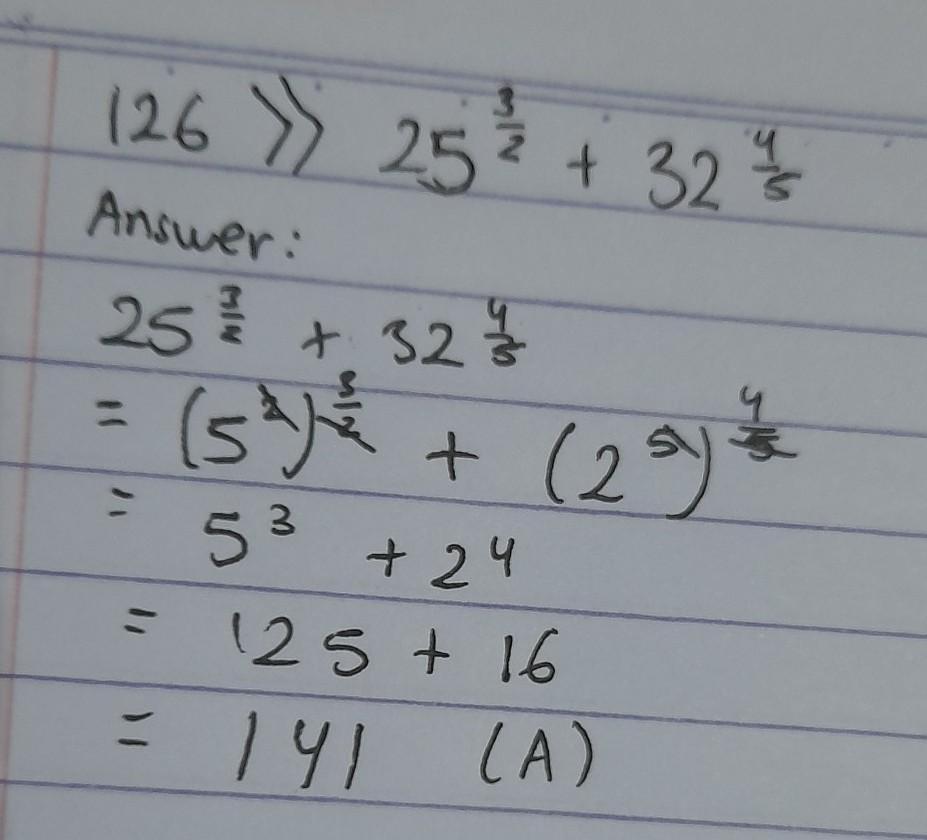 126 >> 25^(3/2) + 32^(4/5)
Answer:
25^(3/2) + 32^(4/5)
= (5^2)^(3/2) + (2^5)^(4/5)
= 5^3 + 2^4
= 125 + 16
= 141 (A)